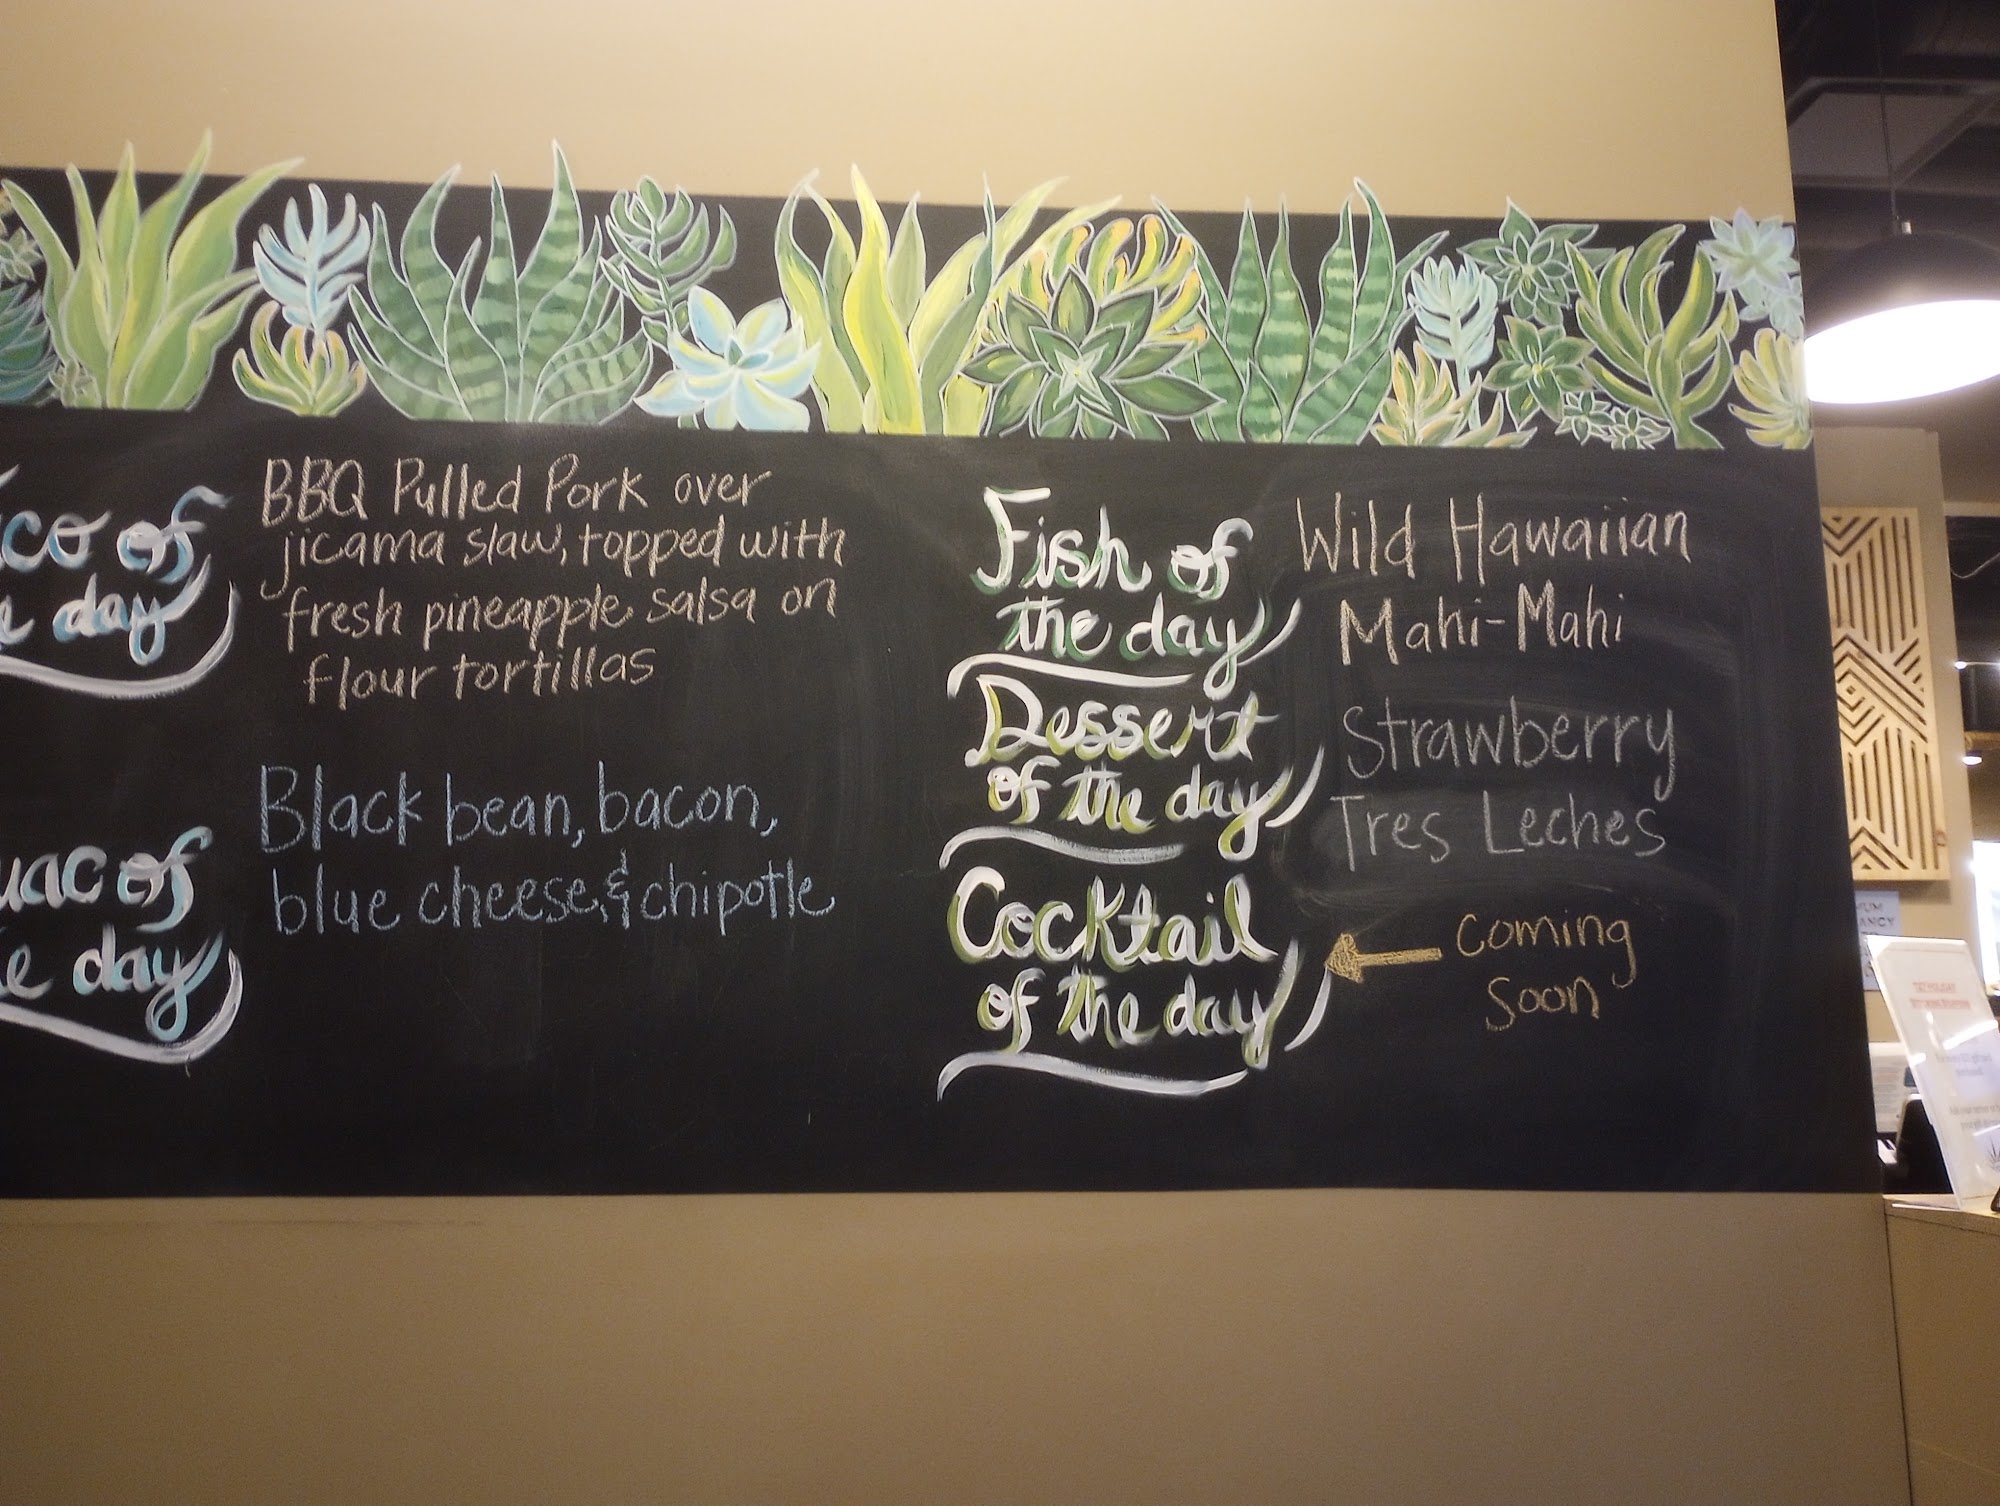 aco of
e day
BBQ Pulled Pork over
jicama slaw, topped with
fresh pineapple salsa on
flour tortillas
uac of
e day
Black bean, bacon,
blue cheese, & chipotle
Fish of
the day
Wild Hawaiian
Mahi-Mahi
Dessert
of the day
Strawberry
Tres Leches
Cocktail
of the day
coming
soon